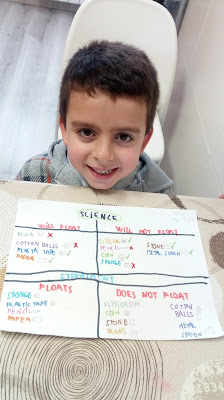 SCIENCE
WILL FLOAT
WILL NOT FLOAT
COTTON BALLS
PLASTIC TAPE
PAPER
SCISSORS
PENCIL
COIN
SPONGE
STONE
METAL SPOON
EXPERIMENT
FLOATS
SPONGE
PLASTIC TAPE
PENCIL
PAPER
DOES NOT FLOAT
SCISSORS
COIN
STONE
BEANS
COTTON
BALLS
METAL
SPOON